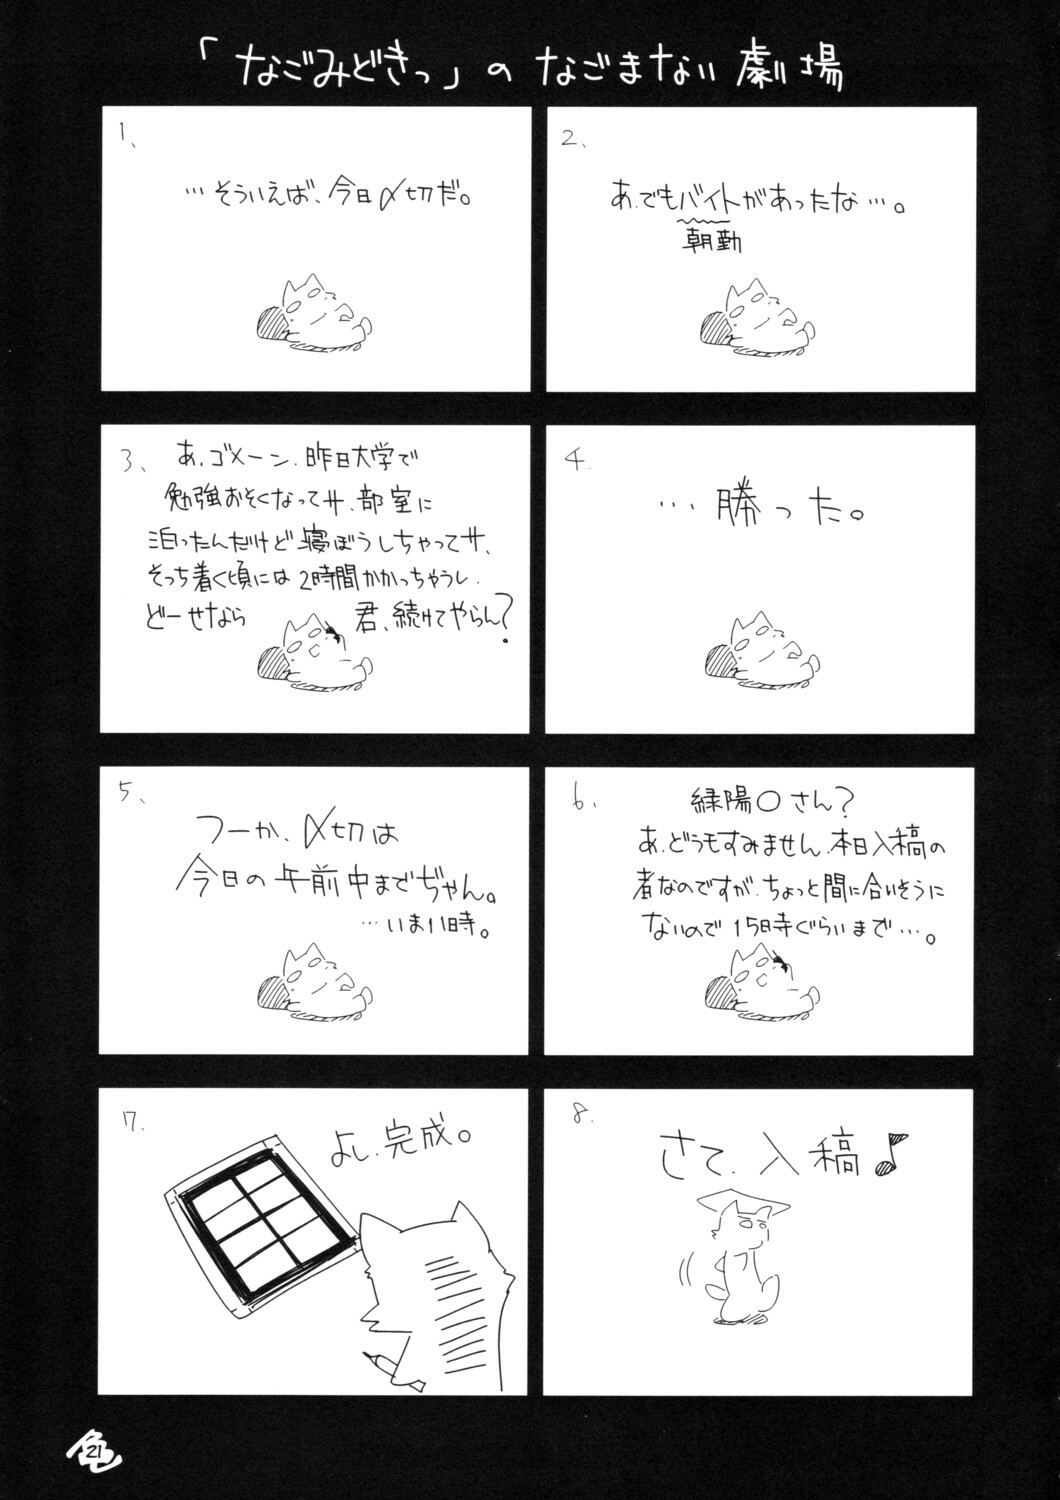 「なごみどきっ」のなごまない劇場
1、
…そういえば、今日〆切だ。
2、
あ、でもバイトがあったな…。
朝勤
3、
あ、ゴメーン、昨日大学で
勉強おそくなってサ、部室に
泊ったんだけど寝ぼうしちゃってサ、
そっち着く頃には2時間かかっちゃうし、
どーせなら 君、続けてやらん?
4.
…勝った。
5、
つーか、〆切は
今日の午前中までぢゃん。
…いま11時。
6、
緑陽〇さん?
あ、どうもすみません、本日入稿の
者なのですが、ちょっと間に合いそうに
ないので15時ぐらいまで…。
7.
よし、完成。
8.
さて、入稿♪
色
21